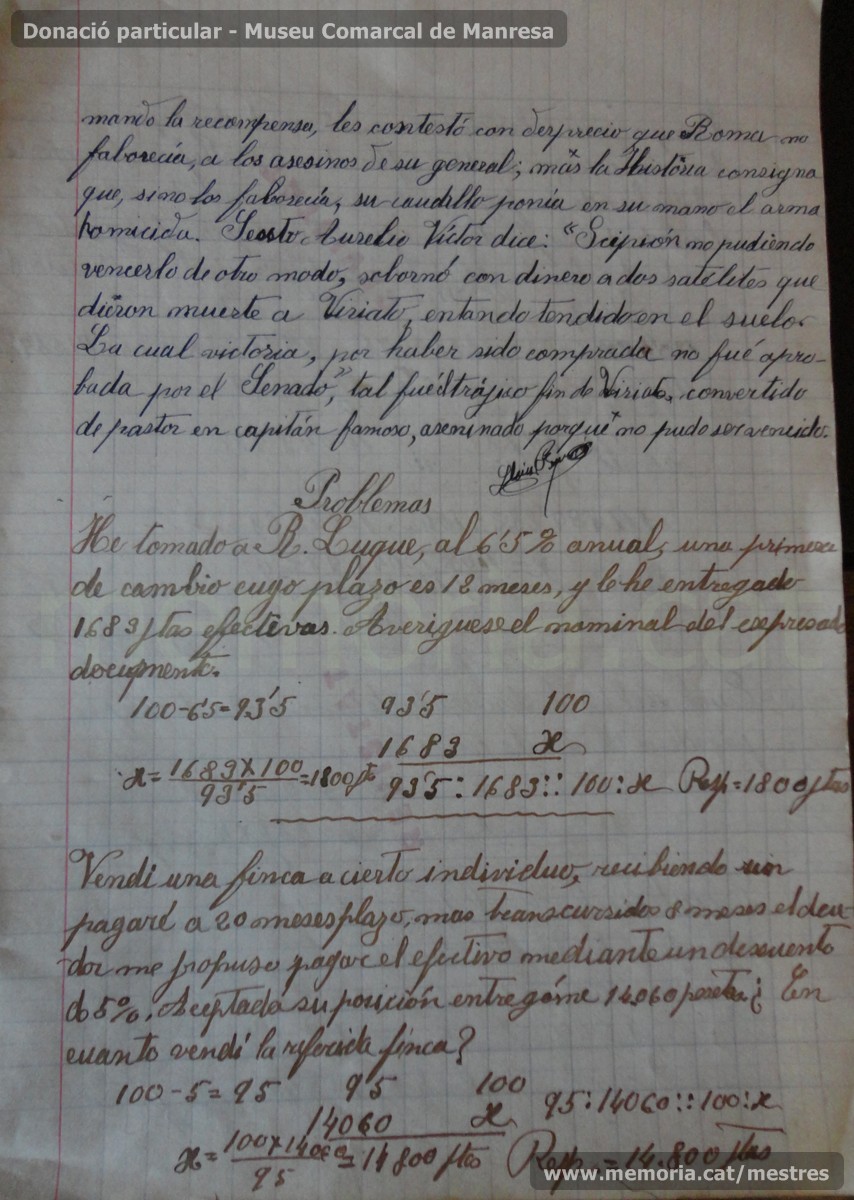 Donació particular - Museu Comarcal de Manresa
mando la recompensa, les contestó con desprecio que Roma no
faborecía, a los asesinos de su general; más la História consigna
que, sino los faborecía, su caudillo ponía en su mano el arma
homicida. Sexto Aurelio Víctor dice: "Scipión no pudiendo
vencerlo de otro modo, sobornó con dinero a dos satélites que
dieron muerte a Viriato, entando tendido en el suelo.
La cual victoria, por haber sido comprada no fué apro-
bada por el Senado", tal fué el trájico fin de Viriato, convertido
de pastor en capitán famoso, aseninado porque no pudo ser vencido.
Problemas
He tomado a R. Luque, al 6'5% anual, una primera
de cambio cuyo plazo es 12 meses, y le he entregado
1683 ptas efectivas. Averiguese el nominal del expresado
document.
100-6'5=93'5 93'5 100
1683 x
x=1683x100/93'5=1800 pts 93'5:1683::100:x Resp=1800 ptas
Vendi una finca a cierto individuo, recibiendo un
pagaré a 20 meses plazo, mas transcursidos 8 meses el deu-
dor me propuso pagar el efectivo mediante un descuento
d 5%. Aceptada su posición entregóme 14.060 pesetas ¿En
cuanto vendí la referida finca?
100-5=95 95 100 95:14060::100:x
14060 x
x=100x14060/95=14800 ptas Resp.=14.800 ptas
www.memoria.cat/mestres